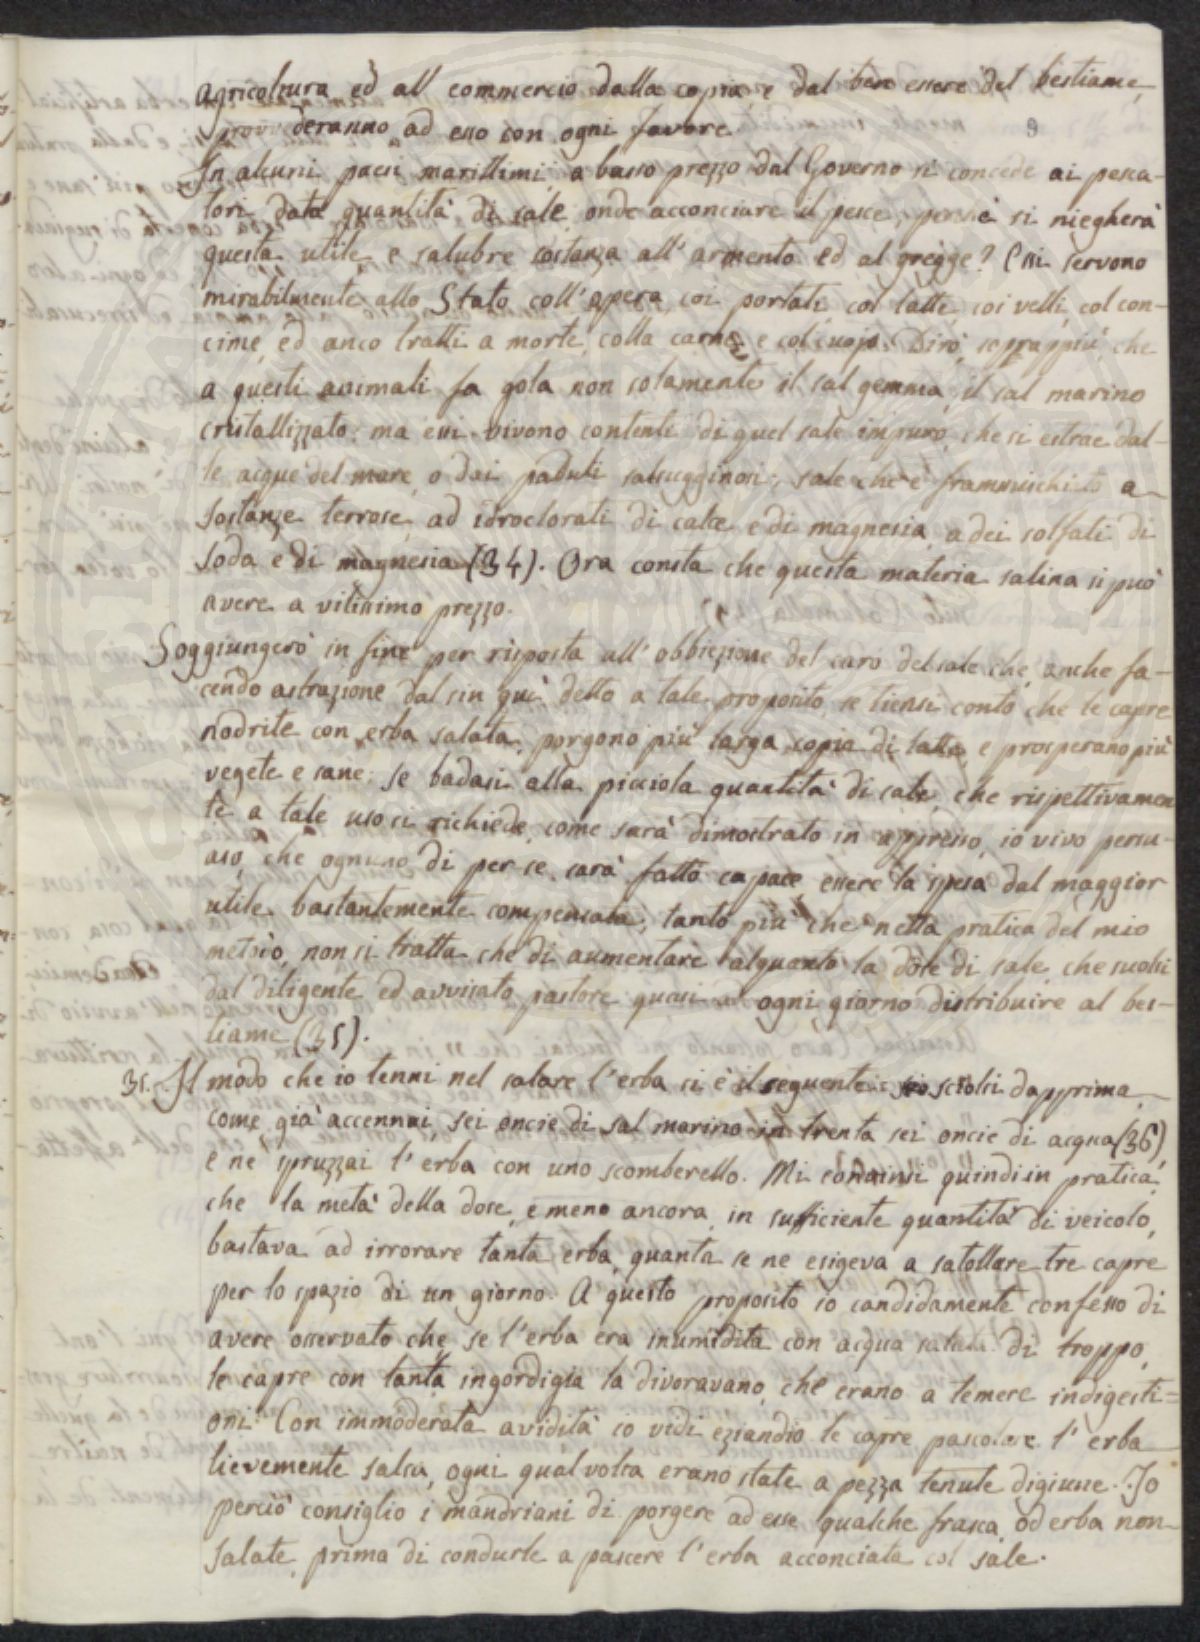 agricoltura ed all' commercio dalla copia, e dal bene essere del bestiame,
provvederanno ad esso con ogni favore.
9
In alcuni paesi marittimi a basso prezzo dal Governo si concede ai pesca-
tori data quantità di sale onde acconciare il pesce; perchè si niegherà
questa utile e salubre sostanza all' armento ed al gregge? Essi servono
mirabilmente allo Stato coll' opera, coi portati col latte, coi velli, col con-
cime, ed anco tratti a morte, colla carne e col cuojo. Dirò soprappiù che
a questi animali fa gola non solamente il sal gemma, il sal marino
cristallizzato; ma essi vivono contenti di quel sale impuro, che si estrae dal-
le acque del mare, o dai paduli salsugginosi; sale che è frammischiato a
sostanze terrose, ad idroclorati di calce e di magnesia, a dei solfati di
soda e di magnesia (34). Ora consta che questa materia salina si può
avere a vilissimo prezzo.
Soggiungerò in fine per risposta all' obbiezione del caro del sale che, anche fa-
cendo astrazione dal sin quì detto a tale proposito, se tiensi conto che le capre
nodrite con erba salata, porgono più larga copia di latte, e prosperano più
vegete e sane; se badasi alla picciola quantità di sale, che rispettivamen
te a tale uso si richiede, come sarà dimostrato in appresso, io vivo persu-
aso, che ognuno di per se, sarà fatto capace, essere la spesa dal maggior
utile bastantemente compensata; tanto più che nella pratica del mio
metodo, non si tratta che di aumentare alquanto la dose di sale, che suolsi
dal diligente ed avvisato pastore quasi ogni giorno distribuire al bes-
tiame (35).
31. Il modo che io tenni nel salare l'erba si è il seguente: sciolsi dapprima,
come già accennai, sei oncie di sal marino in trenta sei oncie di acqua (36),
e ne spruzzai l'erba con uno scomberello. Mi convinsi quindi in pratica,
che la metà della dose, e meno ancora, in sufficiente quantità di veicolo,
bastava ad irrorare tanta erba, quanta se ne esigeva a satollare tre capre
per lo spazio di un giorno. A questo proposito io candidamente confesso di
avere osservato che, se l'erba era inumidita con acqua salata di troppo,
le capre con tanta ingordigia la divoravano, che erano a temere indigesti=
oni. Con immoderata avidità io vidi eziandio le capre pascolare l' erba
lievemente salsa, ogni qual volta erano state a pezza tenute digiune. Io
perciò consiglio i mandriani di porgere ad esse qualche frasca, od erba non
salate, prima di condurle a pascere l'erba acconciata col sale.